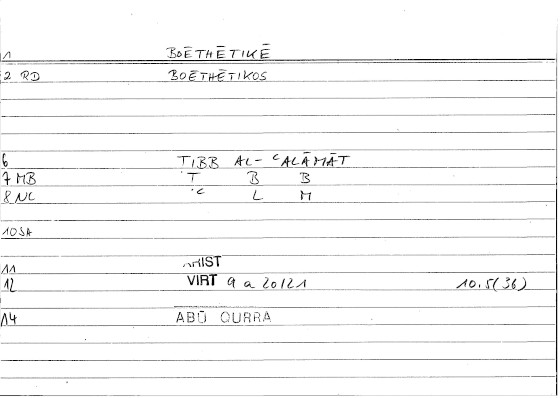 1 BOĒTHĒTIKĒ
2 RD BOĒTHĒTIKOS
6 TIBB AL-ʿALĀMĀT
7 MB ʿT B B
8 NC ʿc L M
10 SA
11 ARIST
12 VIRT 9 a 20/21 10.5(36)
14 ABŪ QURRA